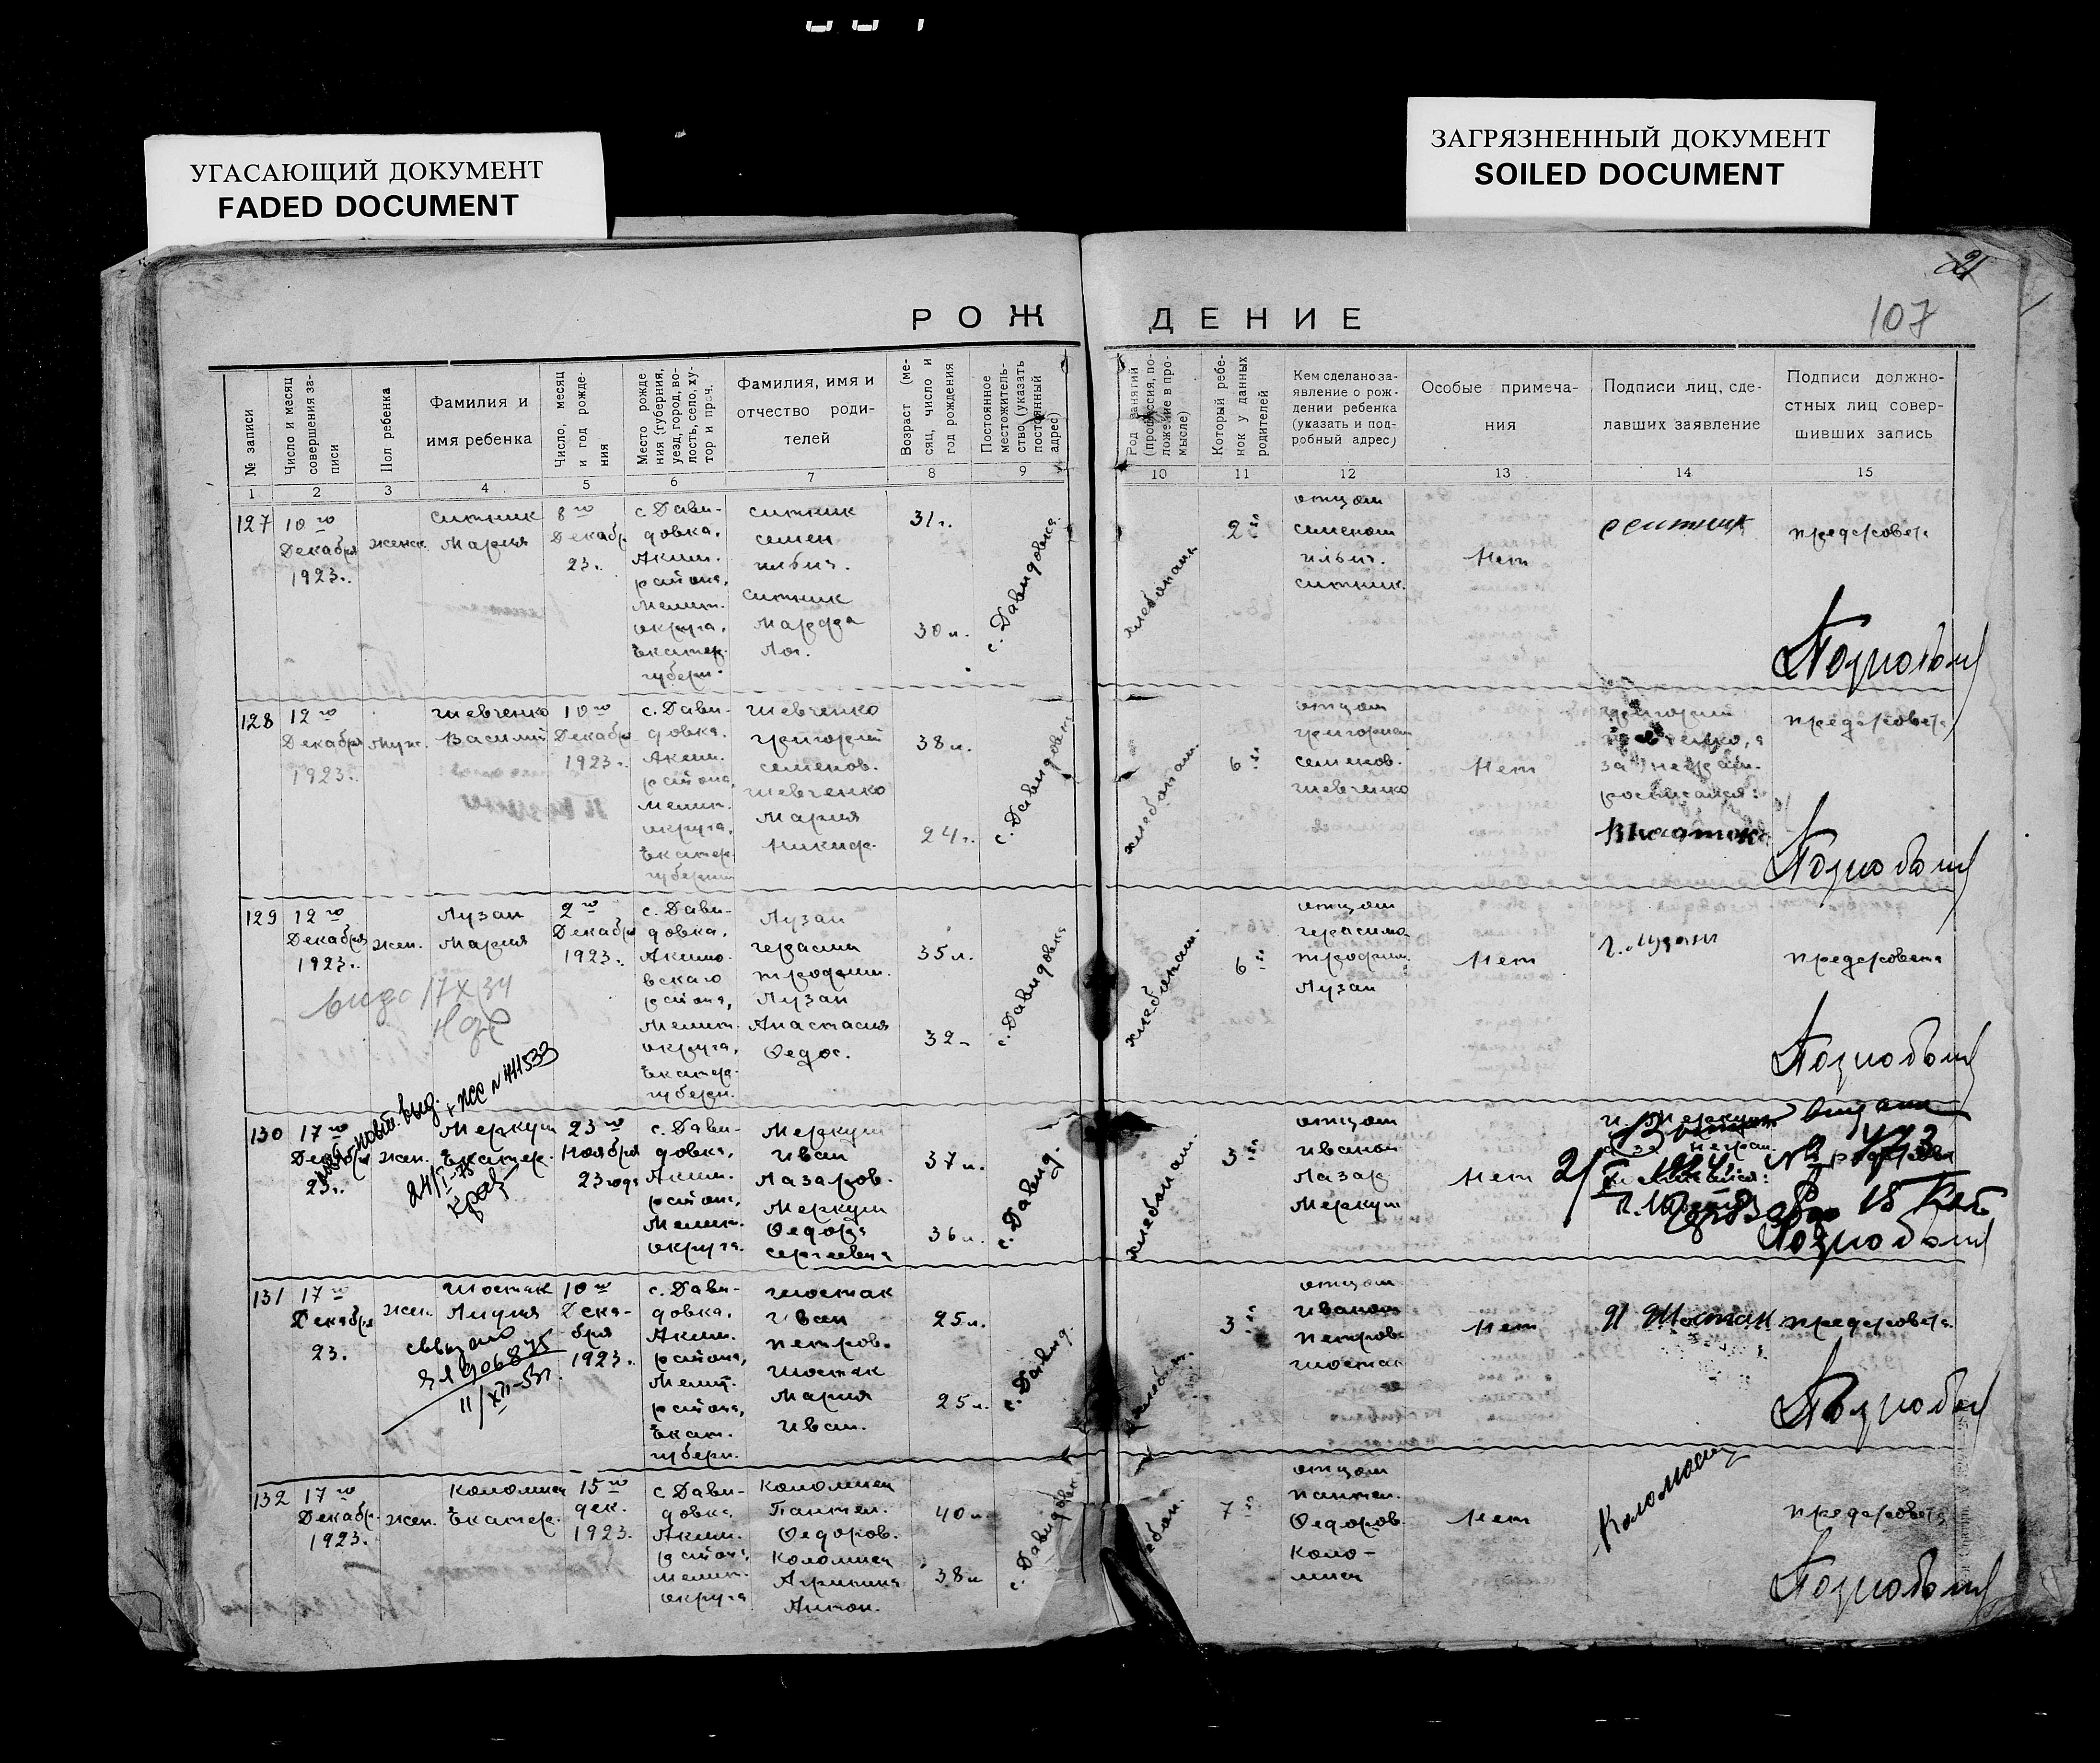 УГАСАЮЩИЙ ДОКУМЕНТ
FADED DOCUMENT
ЗАГРЯЗНЕННЫЙ ДОКУМЕНТ
SOILED DOCUMENT
21
107
РОЖДЕНИЕ
№ записи
Число и месяц
совершения за-
писи
Пол ребенка
Фамилия и
имя ребенка
Число, месяц
и год рожде-
ния
Место рожде
ния (губерния,
уезд, город, во-
лость, село, ху-
тор и проч.
Фамилия, имя и
отчество роди-
телей
Возраст (ме-
сяц, число и
год рождения
Постоянное
местожитель-
ство (указать
постоянный
адрес)
Род занятий
(профессия, по-
ложение в про-
мысле)
Который ребе-
нок у данных
родителей
Кем сделано за-
явление о рож-
дении ребенка
(указать и под-
робный адрес)
Особые примеча-
ния
Подписи лиц, сде-
лавших заявление
Подписи должно-
стных лиц совер-
шивших запись
1 2 3 4 5 6 7 8 9 10 11 12 13 14 15
127
10го
Декабря
1923г.
женск.
Ситник
Мария
8го
Декабр.
23г.
с. Дави-
довка,
Аким.
района,
Мелит.
округа,
Екатер.
губерн.
Ситник
Семен
Ильич.
Ситник
Марфа
31г.
30л.
с. Давидовка
хлебопаш.
2й
отцом
Семеном
Ильич.
Ситник.
Нет
Ситник
предсовета
128
12го
Декабря
1923г.
Муж.
Шевченко
Василий
10го
Декабря
1923г.
с. Дави-
довка.
Аким.
района,
Мелит.
округа,
Екатер.
губернии
Шевченко
Григорий
Семенов.
Шевченко
Мария
Никиф.
38л.
24г.
с. Давидовка
хлебопаш.
6й
отцом
Григорием
Семенов.
Шевченко
Нет
Григорий
за неграм.
росписался:
предсовета
129
12го
Декабря
1923г.
жен.
Лузан
Мария
2го
Декабря
1923г.
с. Дави-
довка,
Акимо-
вского
района,
Мелит.
округа,
Екатер.
губерн.
Лузан
Герасим
Трофим.
Лузан
Анастасия
Федос.
35л.
32-
с. Давидовка
хлебопаш.
6й
отцом
Герасимо.
Трофим.
Лузан
Нет
Г. Лузан
предсовета
130
17го
23г.
жен.
Меркут
Екатер.
23го
Ноября
23года
с. Дави-
довка,
Аким.
района,
Мелит.
округа.
Меркут
Иван
Лазаров.
Меркут
Федора
Сергеевна
37л.
36л.
с. Давид.
хлебопаш.
3й
отцом
Иваном
Лазар.
Меркут
Нет
24/I-75
131
17го
Декабря
23.
жен.
Шостак
10го
Дека-
бря
1923г.
11/XII-53г.
с. Дави-
довка,
Аким.
района,
Мелит.
района,
Екат.
губерн.
Шостак
Иван
Петров.
Шостак
Мария
Иван.
25л.
25л.
с. Давид.
3й
отцом
Иваном
Петров.
Шостак
Нет
И Шостак
предсовета
132
17го
Декабр.
1923г.
жен.
Коломиец
Екатер.
15го
дек.
1923.
с Дави-
довка
Аким.
района,
Мелит.
округа
Коломиец
Пантел.
Федоров.
Коломиец
Агрипина
Антон.
40л.
38л
с. Давидовка
7й
отцом
Пантел.
Федоров.
Коло-
миец
Нет
предсовета